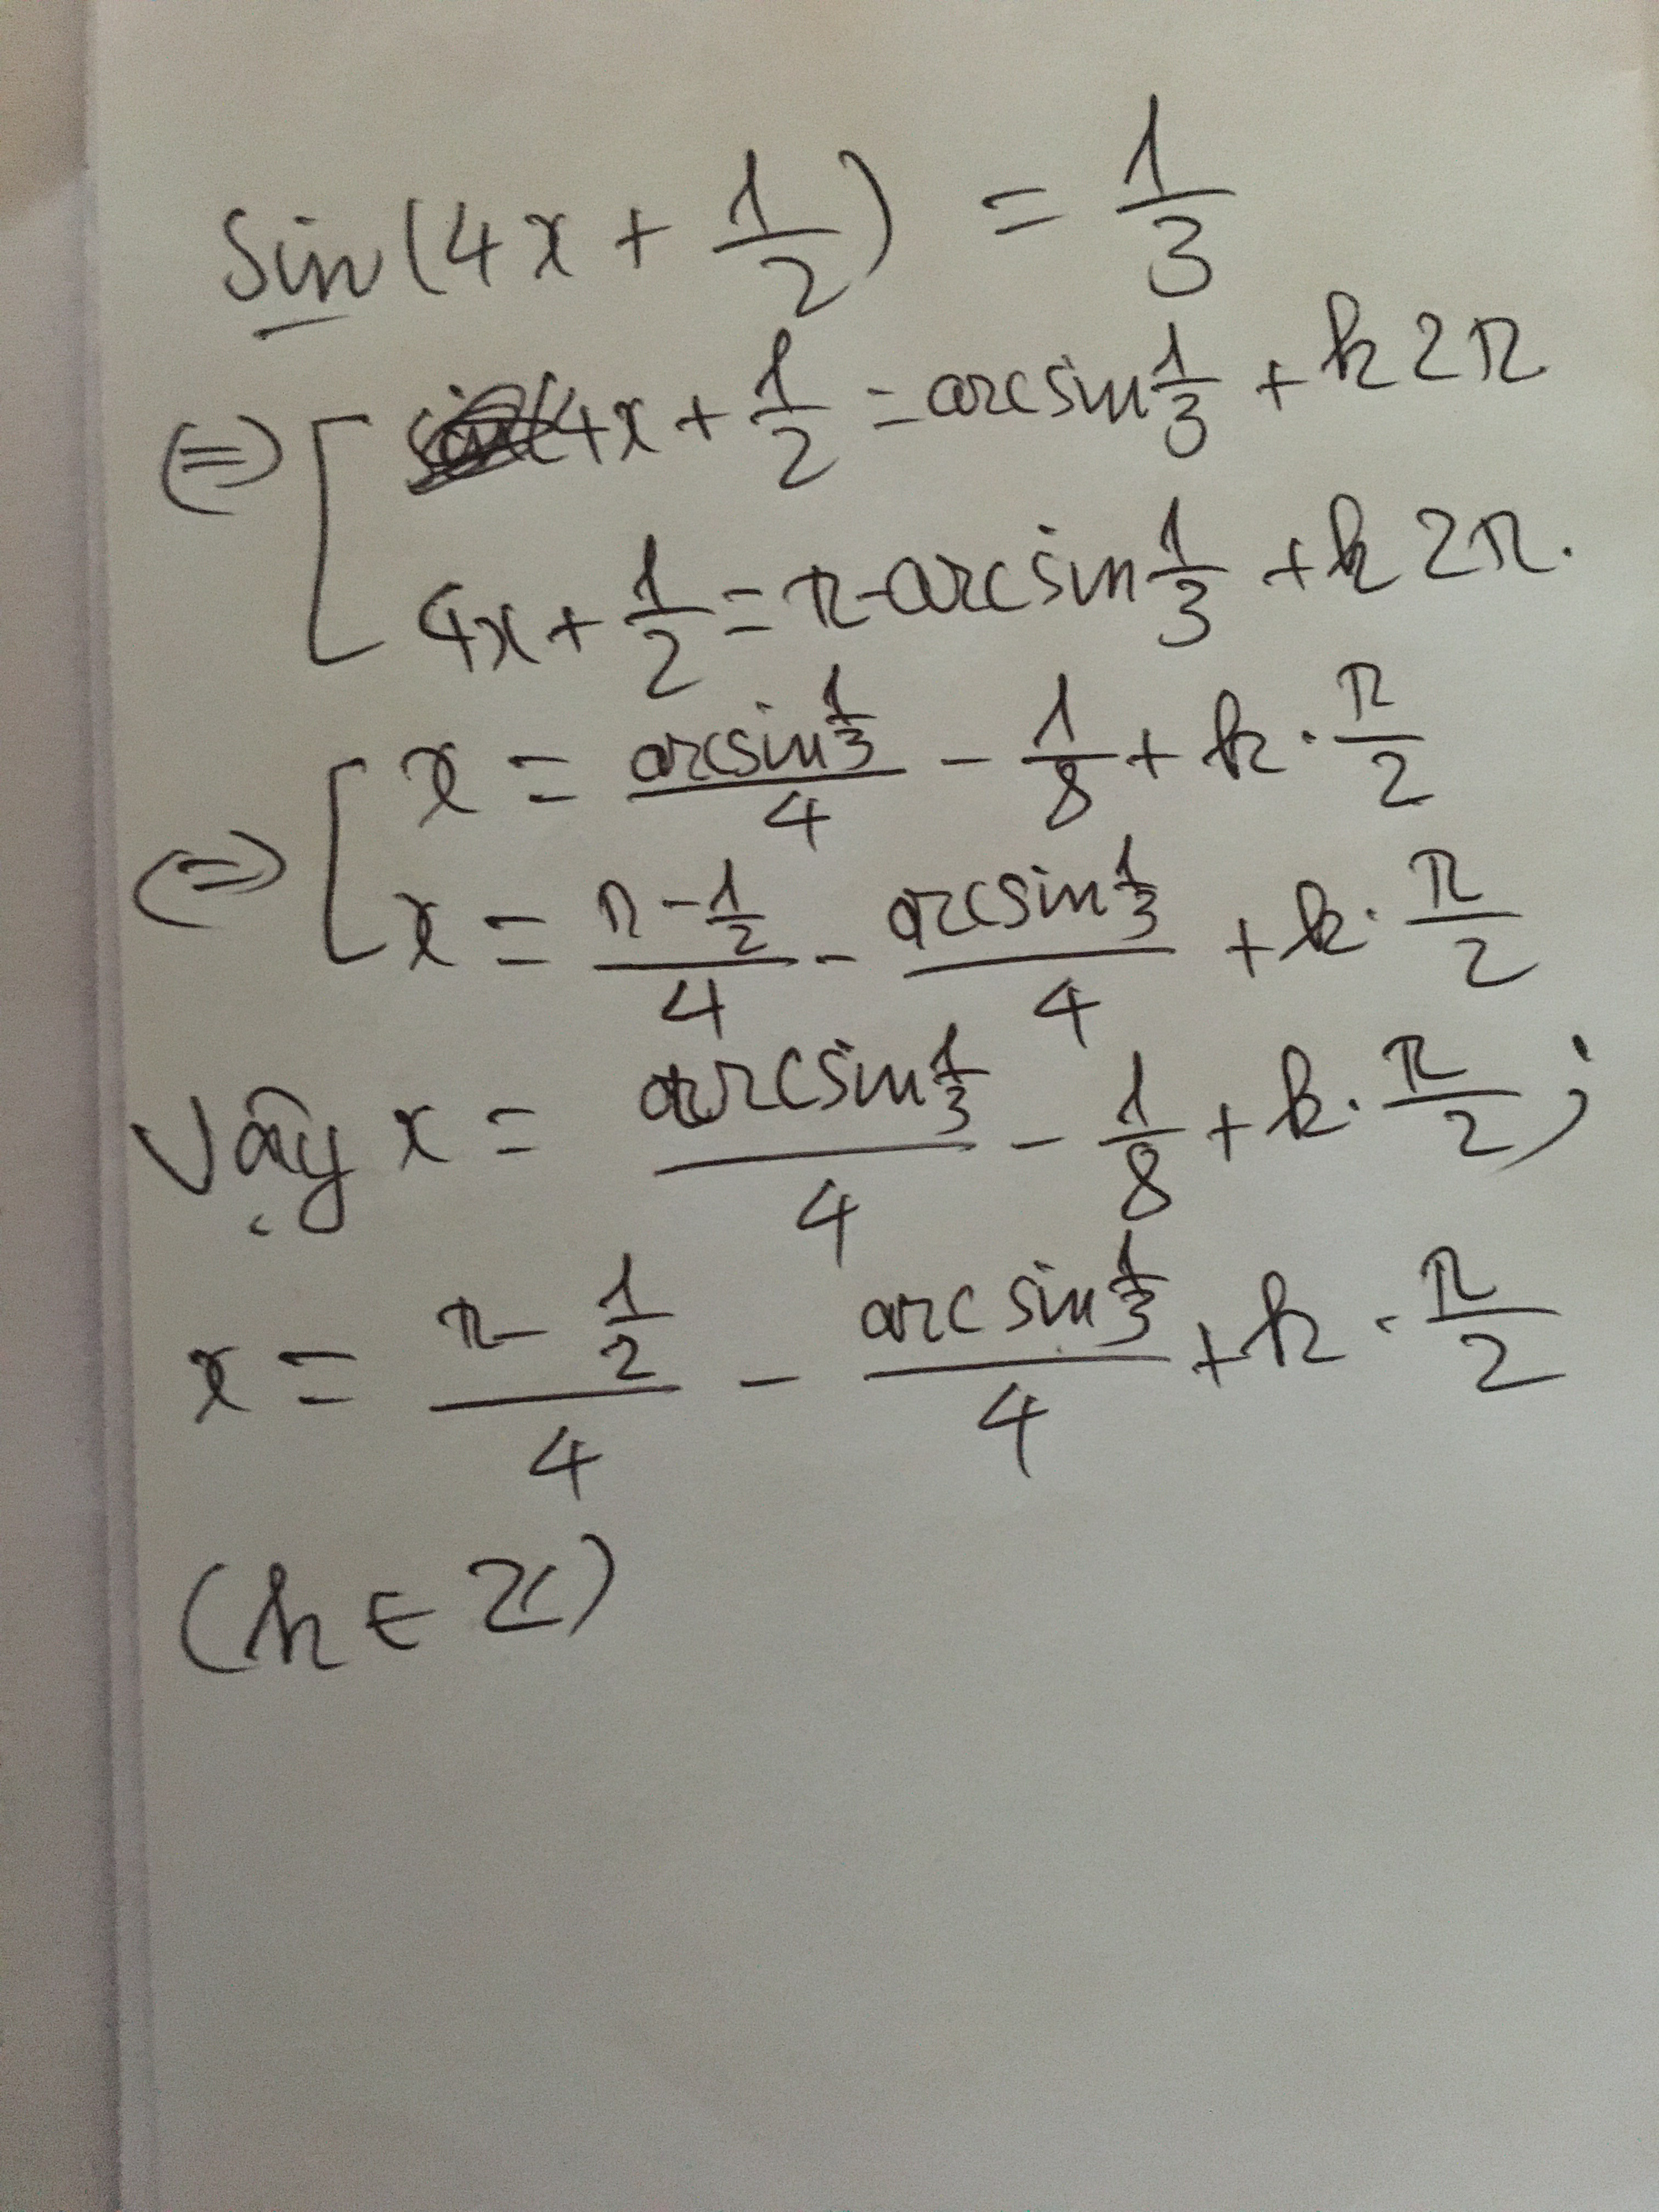 sin(4x + 1/2) = 1/3
⇔ [ 4x + 1/2 = arcsin 1/3 + k2π.
4x + 1/2 = π - arcsin 1/3 + k2π.
⇔ [ x = (arcsin 1/3)/4 - 1/8 + k · π/2
x = (π - 1/2)/4 - (arcsin 1/3)/4 + k · π/2
Vậy x = (arcsin 1/3)/4 - 1/8 + k · π/2 ;
x = (π - 1/2)/4 - (arcsin 1/3)/4 + k · π/2
(k ∈ Z)